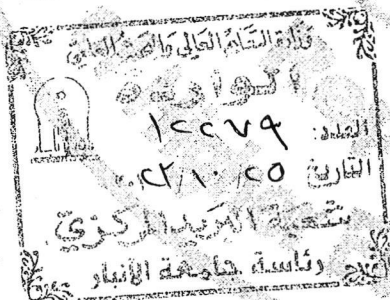 وزارة التعليم العالي والبحث العلمي
الواردة
العدد: ١٢٢٧٩
التاريخ ٢٥ / ١٠ / ٢٢
شعبة البريد المركزي
رئاسة جامعة الأنبار